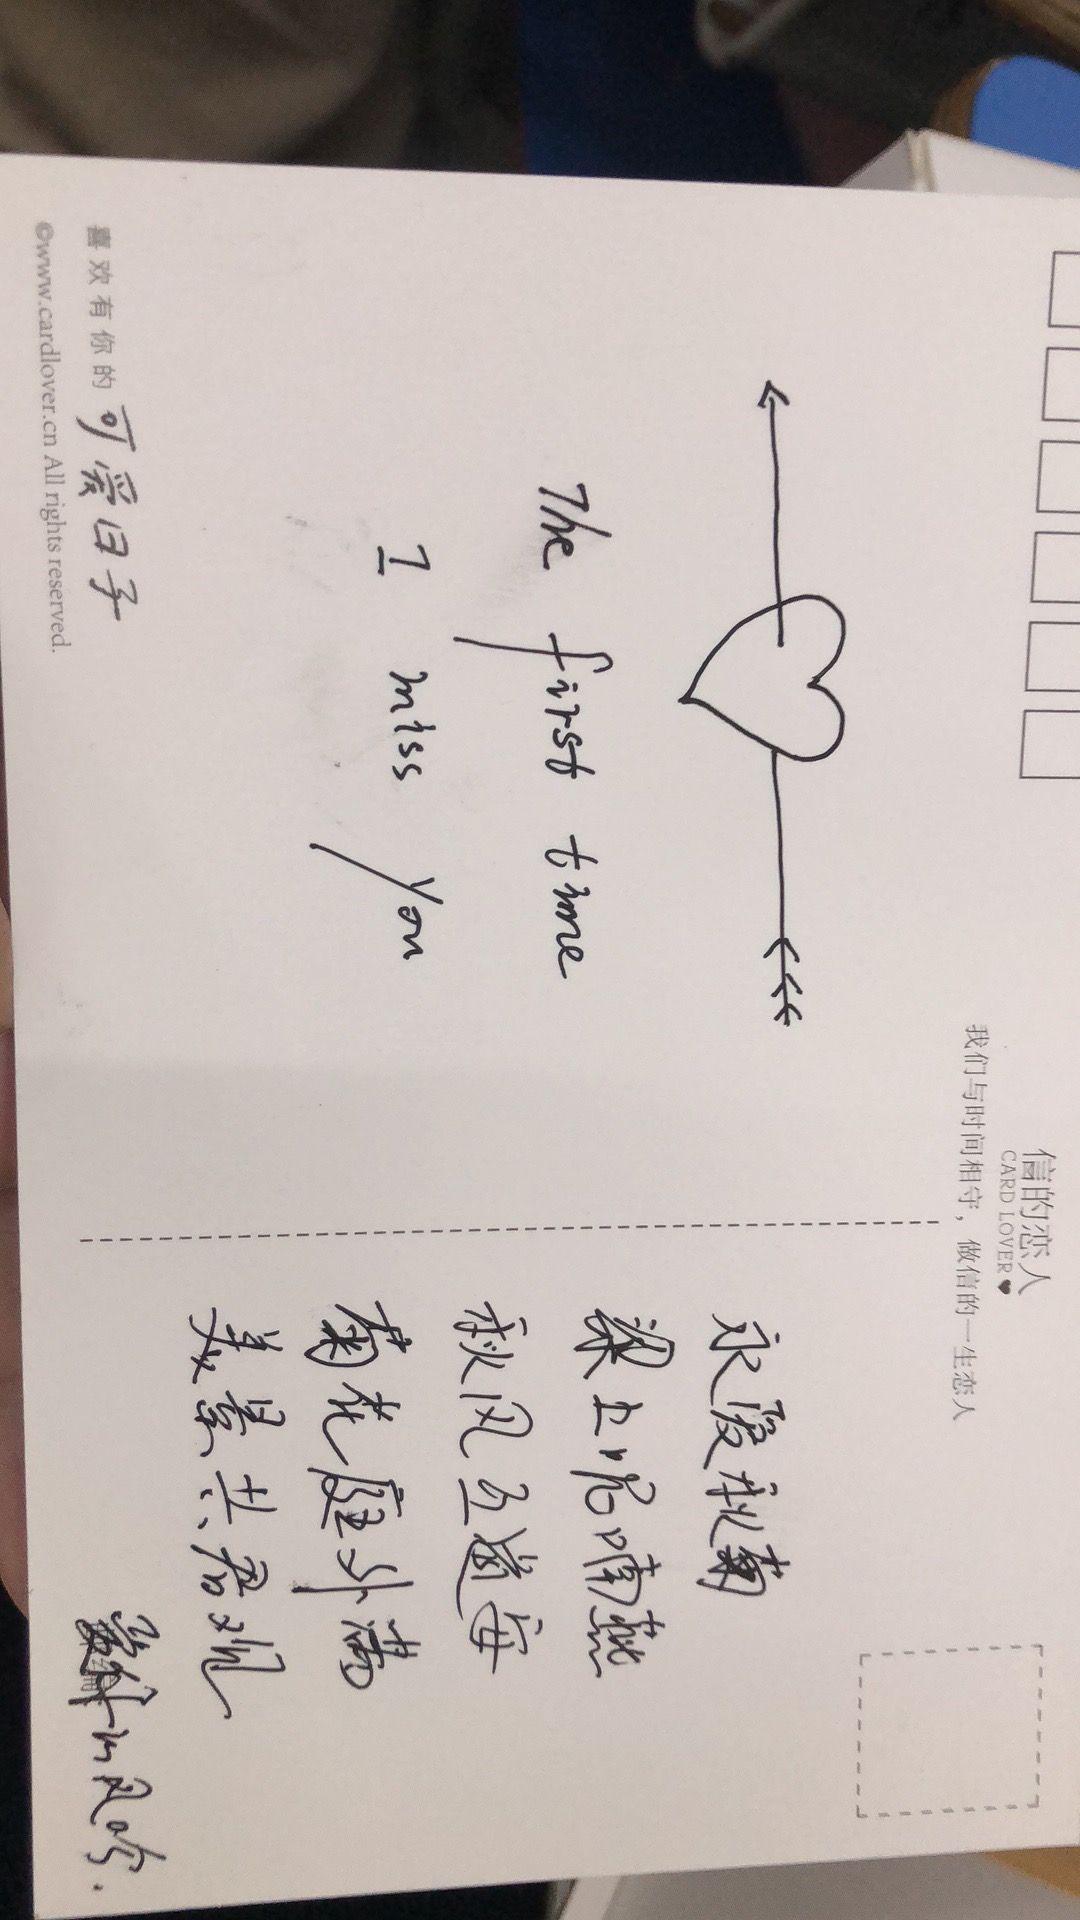 信的恋人
CARD LOVER
我们与时间相守，做信的一生恋人
The first time
I miss you
永爱秋菊
梁上呢喃燕
秋风至
菊花庭外满
美景共君观
爱你
喜欢有你的可爱日子
©www.cardlover.cn All rights reserved.